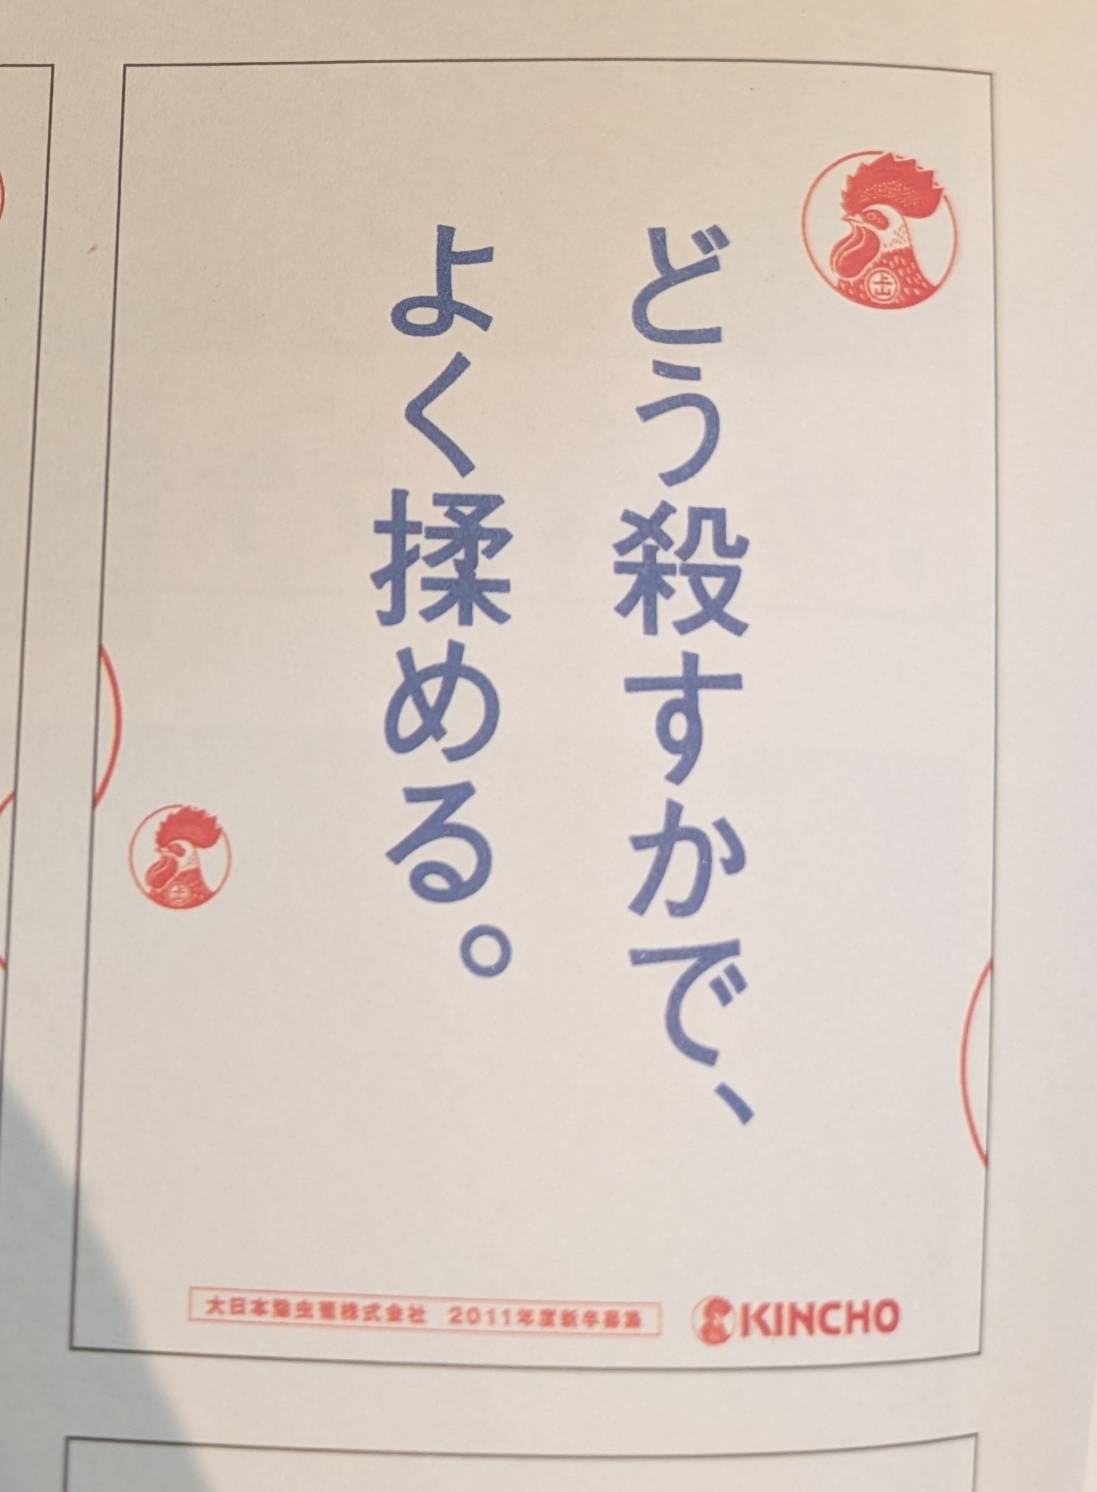 どう殺すかで、
よく揉める。
大日本除虫菊株式会社 2011年度新卒募集
KINCHO